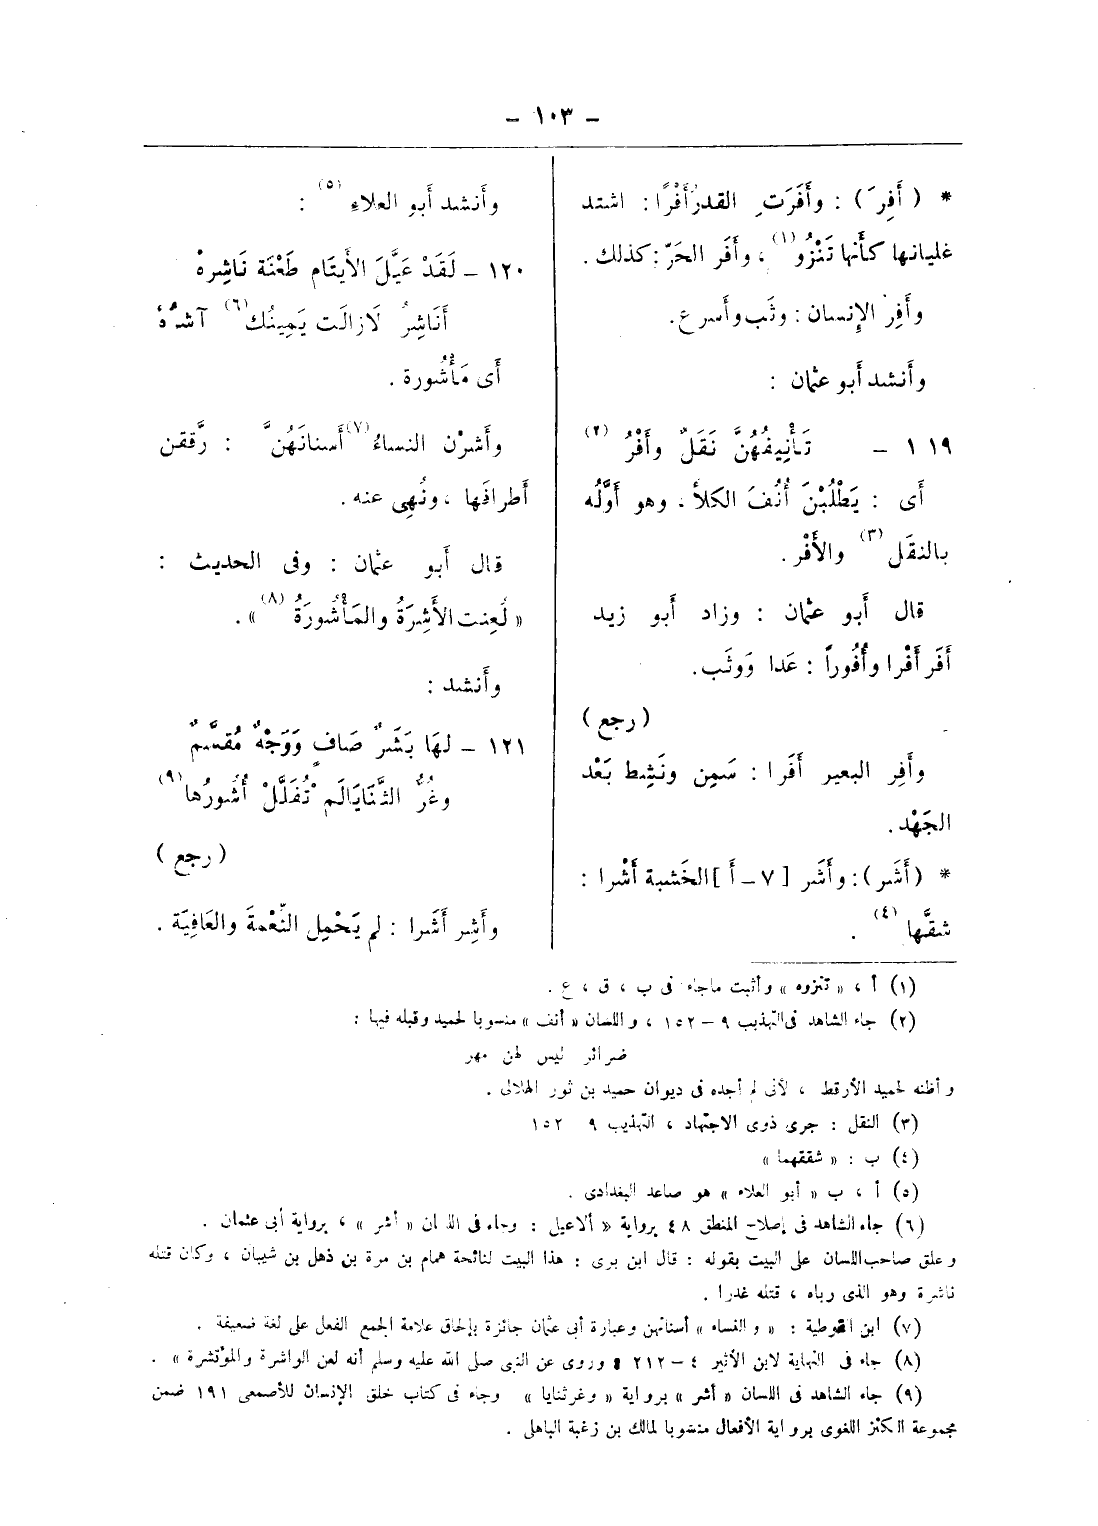 – ١٠٣ –
* ( أَفِرَ ) : وأَفَرَتِ القدرُ أَفْرًا : اشتد
غليانها كأَنها تَنْزُو (١) ، وأَفَر الحَرّ : كذلك .
وأَفِرَ الإنسان : وثَب وأسرع .
وأَنشد أَبو عثمان :
١١٩ – تَأْنِيفُهُنَّ نَقَلٌ وأَفْرُ (٢)
أَى : يَطْلُبْنَ أُنُفَ الكلأ . وهو أَوَّلُه
بالنقَل (٣) والأَفْر .
قال أَبو عثمان : وزاد أَبو زيد
أَفَر أَفْرا وأُفُوراً : عَدا وَوثَب .
( رجع )
وأَفِر البعير أَفَرا : سَمِن ونَشِط بَعْد
الجَهْد .
* ( أَشَر ) : وأَشَر [ ٧ – أ ] الخَشبة أَشْرا :
شقَّها (٤) .
وأَنشد أَبو العلاء (٥) :
١٢٠ – لَقَدْ عَيَّلَ الأَيتَام طَعْنَة نَاشِرهْ
أَنَاشِرُ لَازالَت يَمِينُك (٦) آشرهْ
أَى مَأْشُورة .
وأَشرْن النساءُ (٧) أَسنانَهُنَّ : رَقَّقن
أَطرافَها ، ونُهِى عنه .
قال أَبو عثمان : وفى الحديث :
« لُعِنت الأَشِرَةُ والمَأْشُورَةُ (٨) » .
وأَنشد :
١٢١ – لهَا بَشَرٌ صَافٍ وَوَجْهٌ مُقَسَّمٌ
وغُرُّ الثَّنَايَا لَم تُفَلَّلْ أُشُورُها (٩)
( رجع )
وأَشِر أَشَرا : لم يَحْمِل النِّعْمةَ والعَافِيَة .
(١) أ ، « تنزوه » وأثبت ماجاء فى ب ، ق ، ع .
(٢) جاء الشاهد فى التهذيب ٩ – ١٥٢ ، واللسان « أنف » منسوبا لحميد وقبله فيها :
ضرائر ليس لهن مهر
وأظنه لحميد الأرقط ، لأنى لم أجده فى ديوان حميد بن ثور الهلالى .
(٣) النقل : جرى ذوى الاجتهاد ، التهذيب ٩ ١٥٢
(٤) ب : « شققهما »
(٥) أ ، ب « أبو العلاء » هو صاعد البغدادى .
(٦) جاء الشاهد فى إصلاح المنطق ٤٨ برواية « ألاعيل : وجاء فى اللسان « أشر » ، برواية أبى عثمان .
وعلق صاحب اللسان على البيت بقوله : قال ابن برى : هذا البيت لنائحة همام بن مرة بن ذهل بن شيبان ، وكان قتله
ناشرة وهو الذى رباه ، قتله غدرا .
(٧) ابن القوطية : « والنساء » أسنانهن وعبارة أبى عثمان جائزة بإلحاق علامة الجمع الفعل على لغة ضعيفة .
(٨) جاء فى النهاية لابن الأثير ٤ – ٢١٢ « وروى عن النبى صلى الله عليه وسلم أنه لعن الواشرة والمؤتشرة » .
(٩) جاء الشاهد فى اللسان « أشر » برواية « وغر ثنايا » وجاء فى كتاب خلق الإنسان للأصمعى ١٩١ ضمن
مجموعة الكنز اللغوى برواية الأفعال منسوبا لمالك بن زغبة الباهلى .